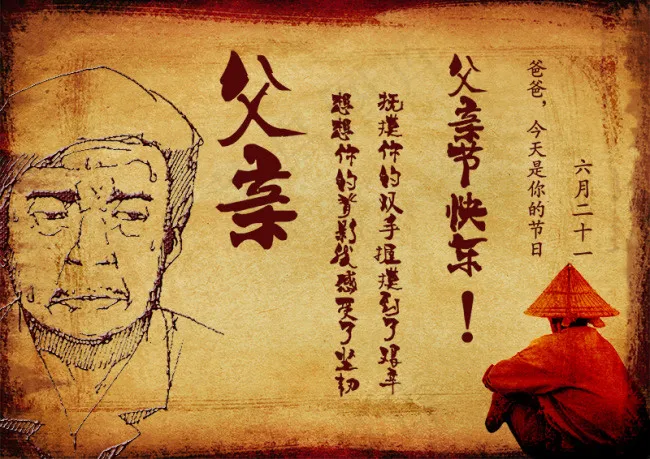 父亲
想想你的背影我感受了坚韧
抚摸你的双手我摸到了艰辛
父亲节快乐！
爸爸，今天是你的节日
六月二十一